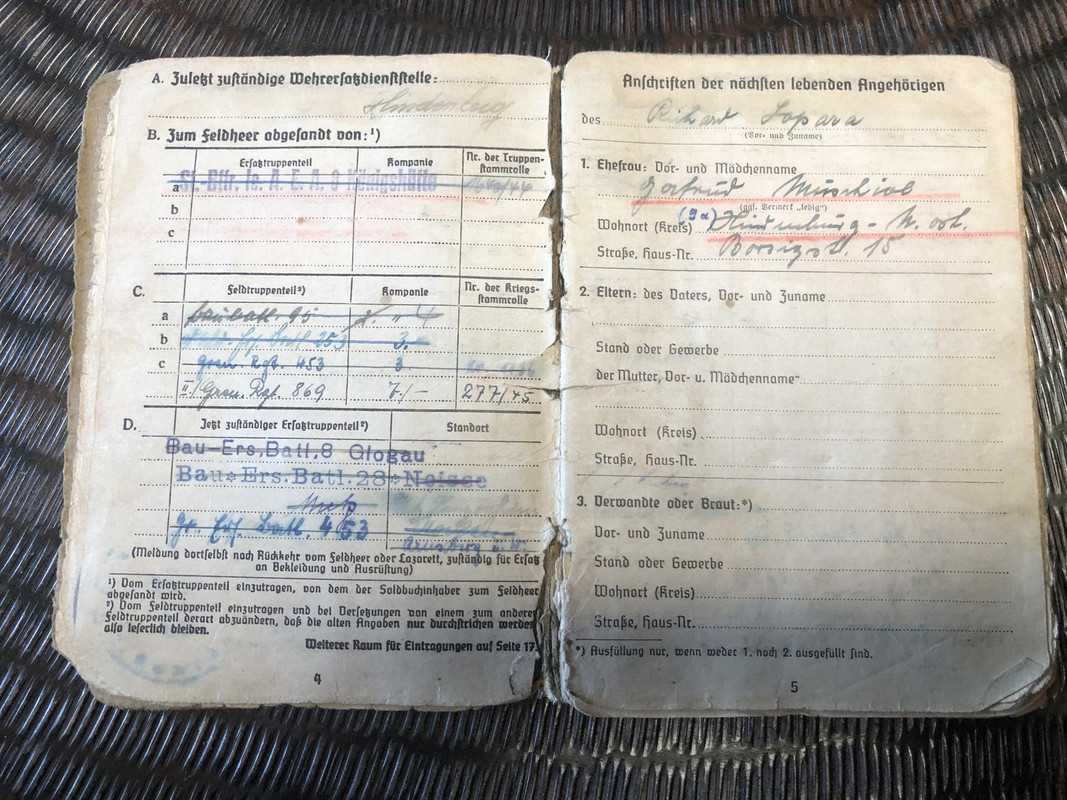 A. Zuletzt zuständige Wehrersatzdienststelle:
Hindenburg
B. Zum Feldheer abgesandt von:¹)
Ersatztruppenteil
Kompanie
Nr. der Truppen-
stammrolle
a St.-Bttr. le. A. E. A. 8 Königshütte
b
c
C.
Feldtruppenteil²)
Kompanie
Nr. der Kriegs-
stammrolle
a Baubatl. 95 4
b Batl. 253 3.
c Gren. Rgt. 453 3
II/ Gren. Rgt. 869 7/- 277/45
D.
Jetzt zuständiger Ersatztruppenteil²)
Standort
Bau-Ers.Batl.8 Glogau
Bau-Ers.Batl.28 Neisse
Gr. Ers. Batl. 453
(Meldung dortselbst nach Rückkehr vom Feldheer oder Lazarett, zuständig für Ersatz
an Bekleidung und Ausrüstung)
¹) Vom Ersatztruppenteil einzutragen, von dem der Soldbuchinhaber zum Feldheer
abgesandt wird.
²) Vom Feldtruppenteil einzutragen und bei Versetzungen von einem zum anderen
Feldtruppenteil derart abzuändern, daß die alten Angaben nur durchstrichen werden,
also leserlich bleiben.
Weiterer Raum für Eintragungen auf Seite 17.
4
Anschriften der nächsten lebenden Angehörigen
des Richard Sopara
(Vor- und Zuname)
1. Ehefrau: Vor- und Mädchenname
Gertrud Muschiol
(ggf. Vermerk „ledig“)
Wohnort (Kreis) (9a) Hindenburg - O.
Straße, Haus-Nr. Borsigstr. 15
2. Eltern: des Vaters, Vor- und Zuname
Stand oder Gewerbe
der Mutter, Vor- u. Mädchenname
Wohnort (Kreis)
Straße, Haus-Nr.
3. Verwandte oder Braut:*)
Vor- und Zuname
Stand oder Gewerbe
Wohnort (Kreis)
Straße, Haus-Nr.
*) Ausfüllung nur, wenn weder 1. noch 2. ausgefüllt sind.
5